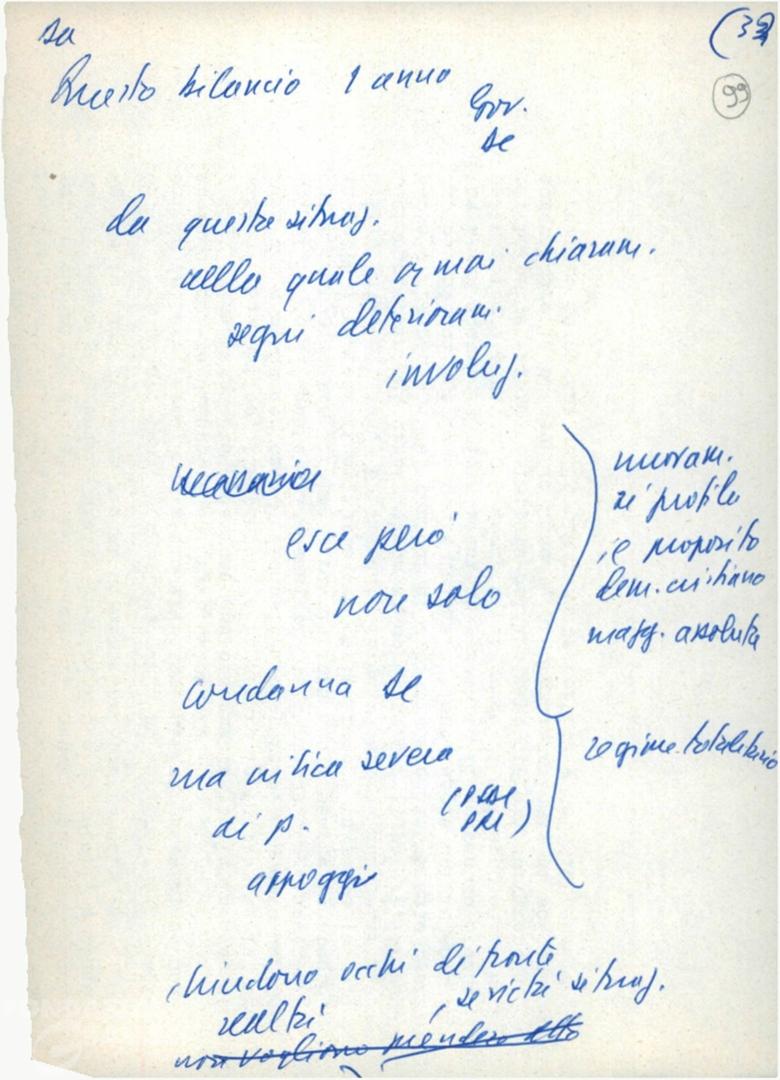 da
(32
99
Questo bilancio 1 anno
Gov.
DC
da questa situaz.
nella quale ormai chiaram.
segni deterioram.
involuz.
necessaria
esce però
non solo
condanna DC
ma critica severa
di p. (PSDI
PRI)
appoggio
nuovam.
si profila
il proposito
dem. cristiano
magg. assoluta
regime totalitario
chiudono occhi di fronte
realtà, serietà situaz.
non vogliono prendere atto